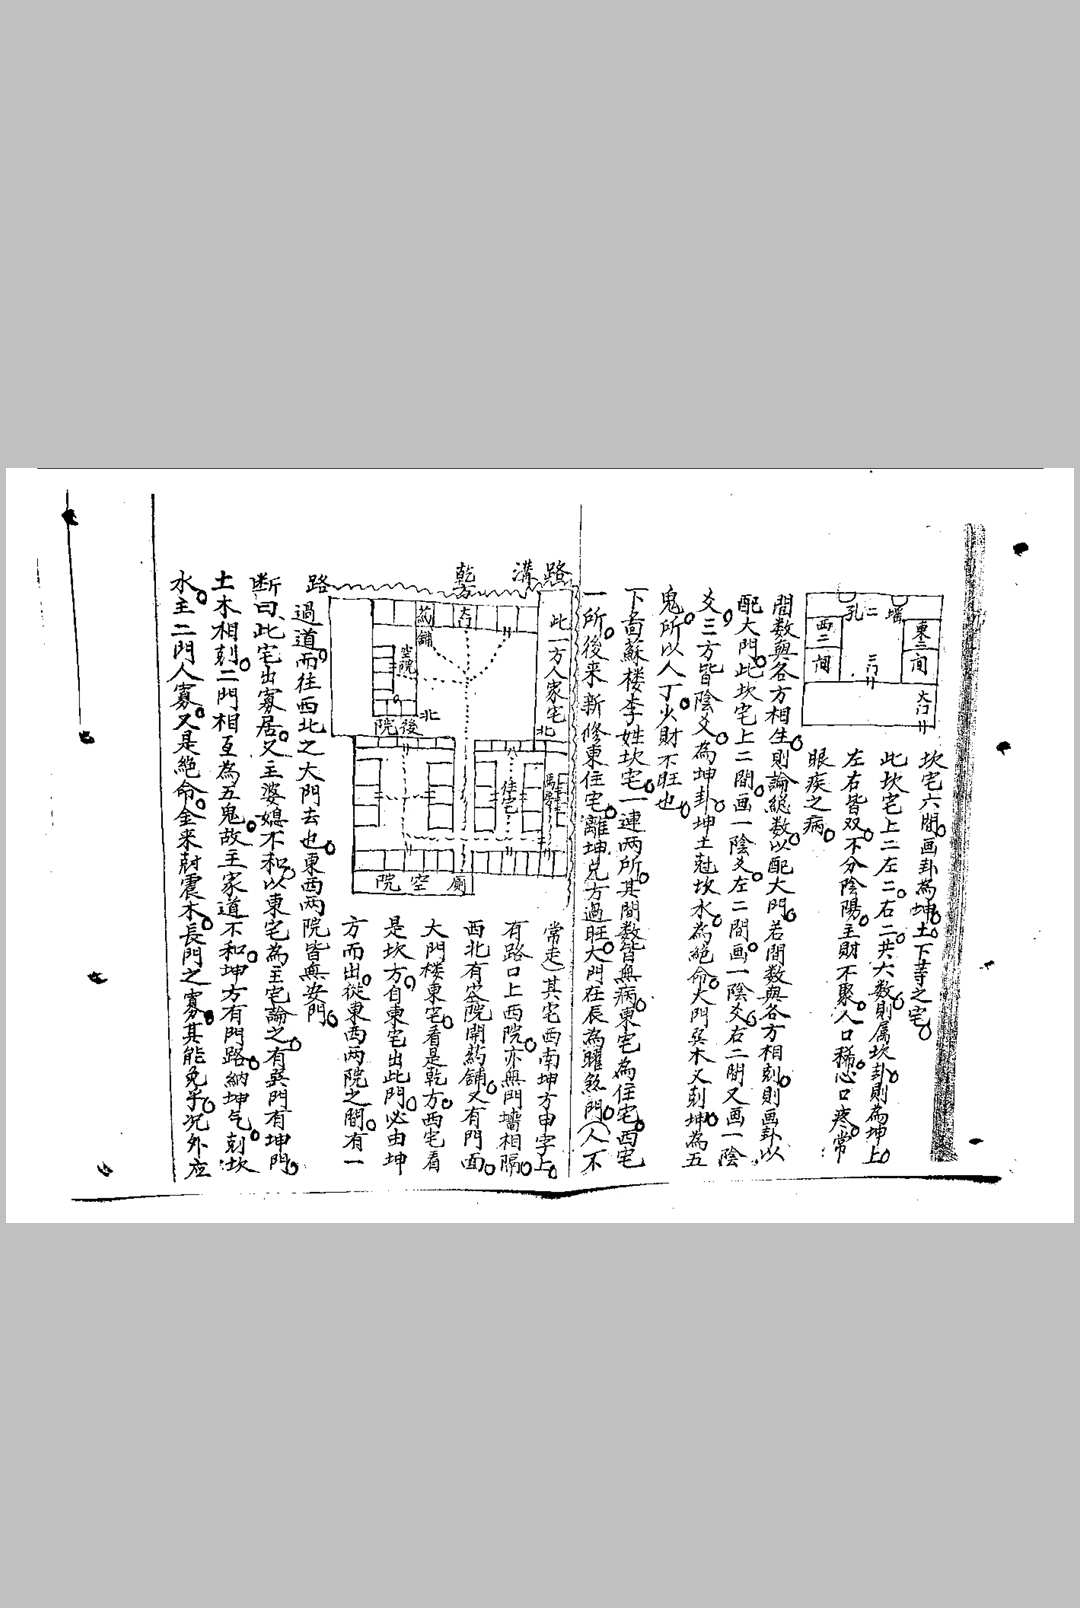 坎宅六間画卦為坤土下等之宅
此坎宅上二左二右二共六数則属坎卦則為坤上
左右皆双不分陰陽主財不聚人口稀心口疼常
眼疾之病
孔二墙
西二間
東二間
二门
大门
間数與各方相生則論總数以配大門若間数與各方相剋則画卦以
配大門此坎宅上二間画一陰爻左二間画一陰爻右二間又画一陰
爻三方皆陰爻為坤卦坤土尅坎水為絕命大門巽木又剋坤為五
鬼所以人丁少財不旺也
下啚蘇楼李姓坎宅一連两所其間数皆無病東宅為住宅西宅
一所後来新修東住宅離坤兑方過旺大門在辰為曜煞門(人不
路溝
乾方
路
此一方人家宅
北
大门
药舖
空院
後院
北
住宅
厕空院
常走)其宅西南坤方申字上
有路口上西院亦無門墻相隔
西北有空院開药舖又有門面
大門楼東宅看是乾方西宅看
是坎方自東宅出此門必由坤
方而出從東西两院之間有一
過道而往西北之大門去也東西两院皆無安門
断曰此宅出寡居又主婆媳不和以東宅為主宅論之有巽門有坤門
土木相剋二門相互為五鬼故主家道不和坤方有門路納坤气剋坎
水主二門人寡又是絕命金来尅震木長門之寡其能免乎况外应